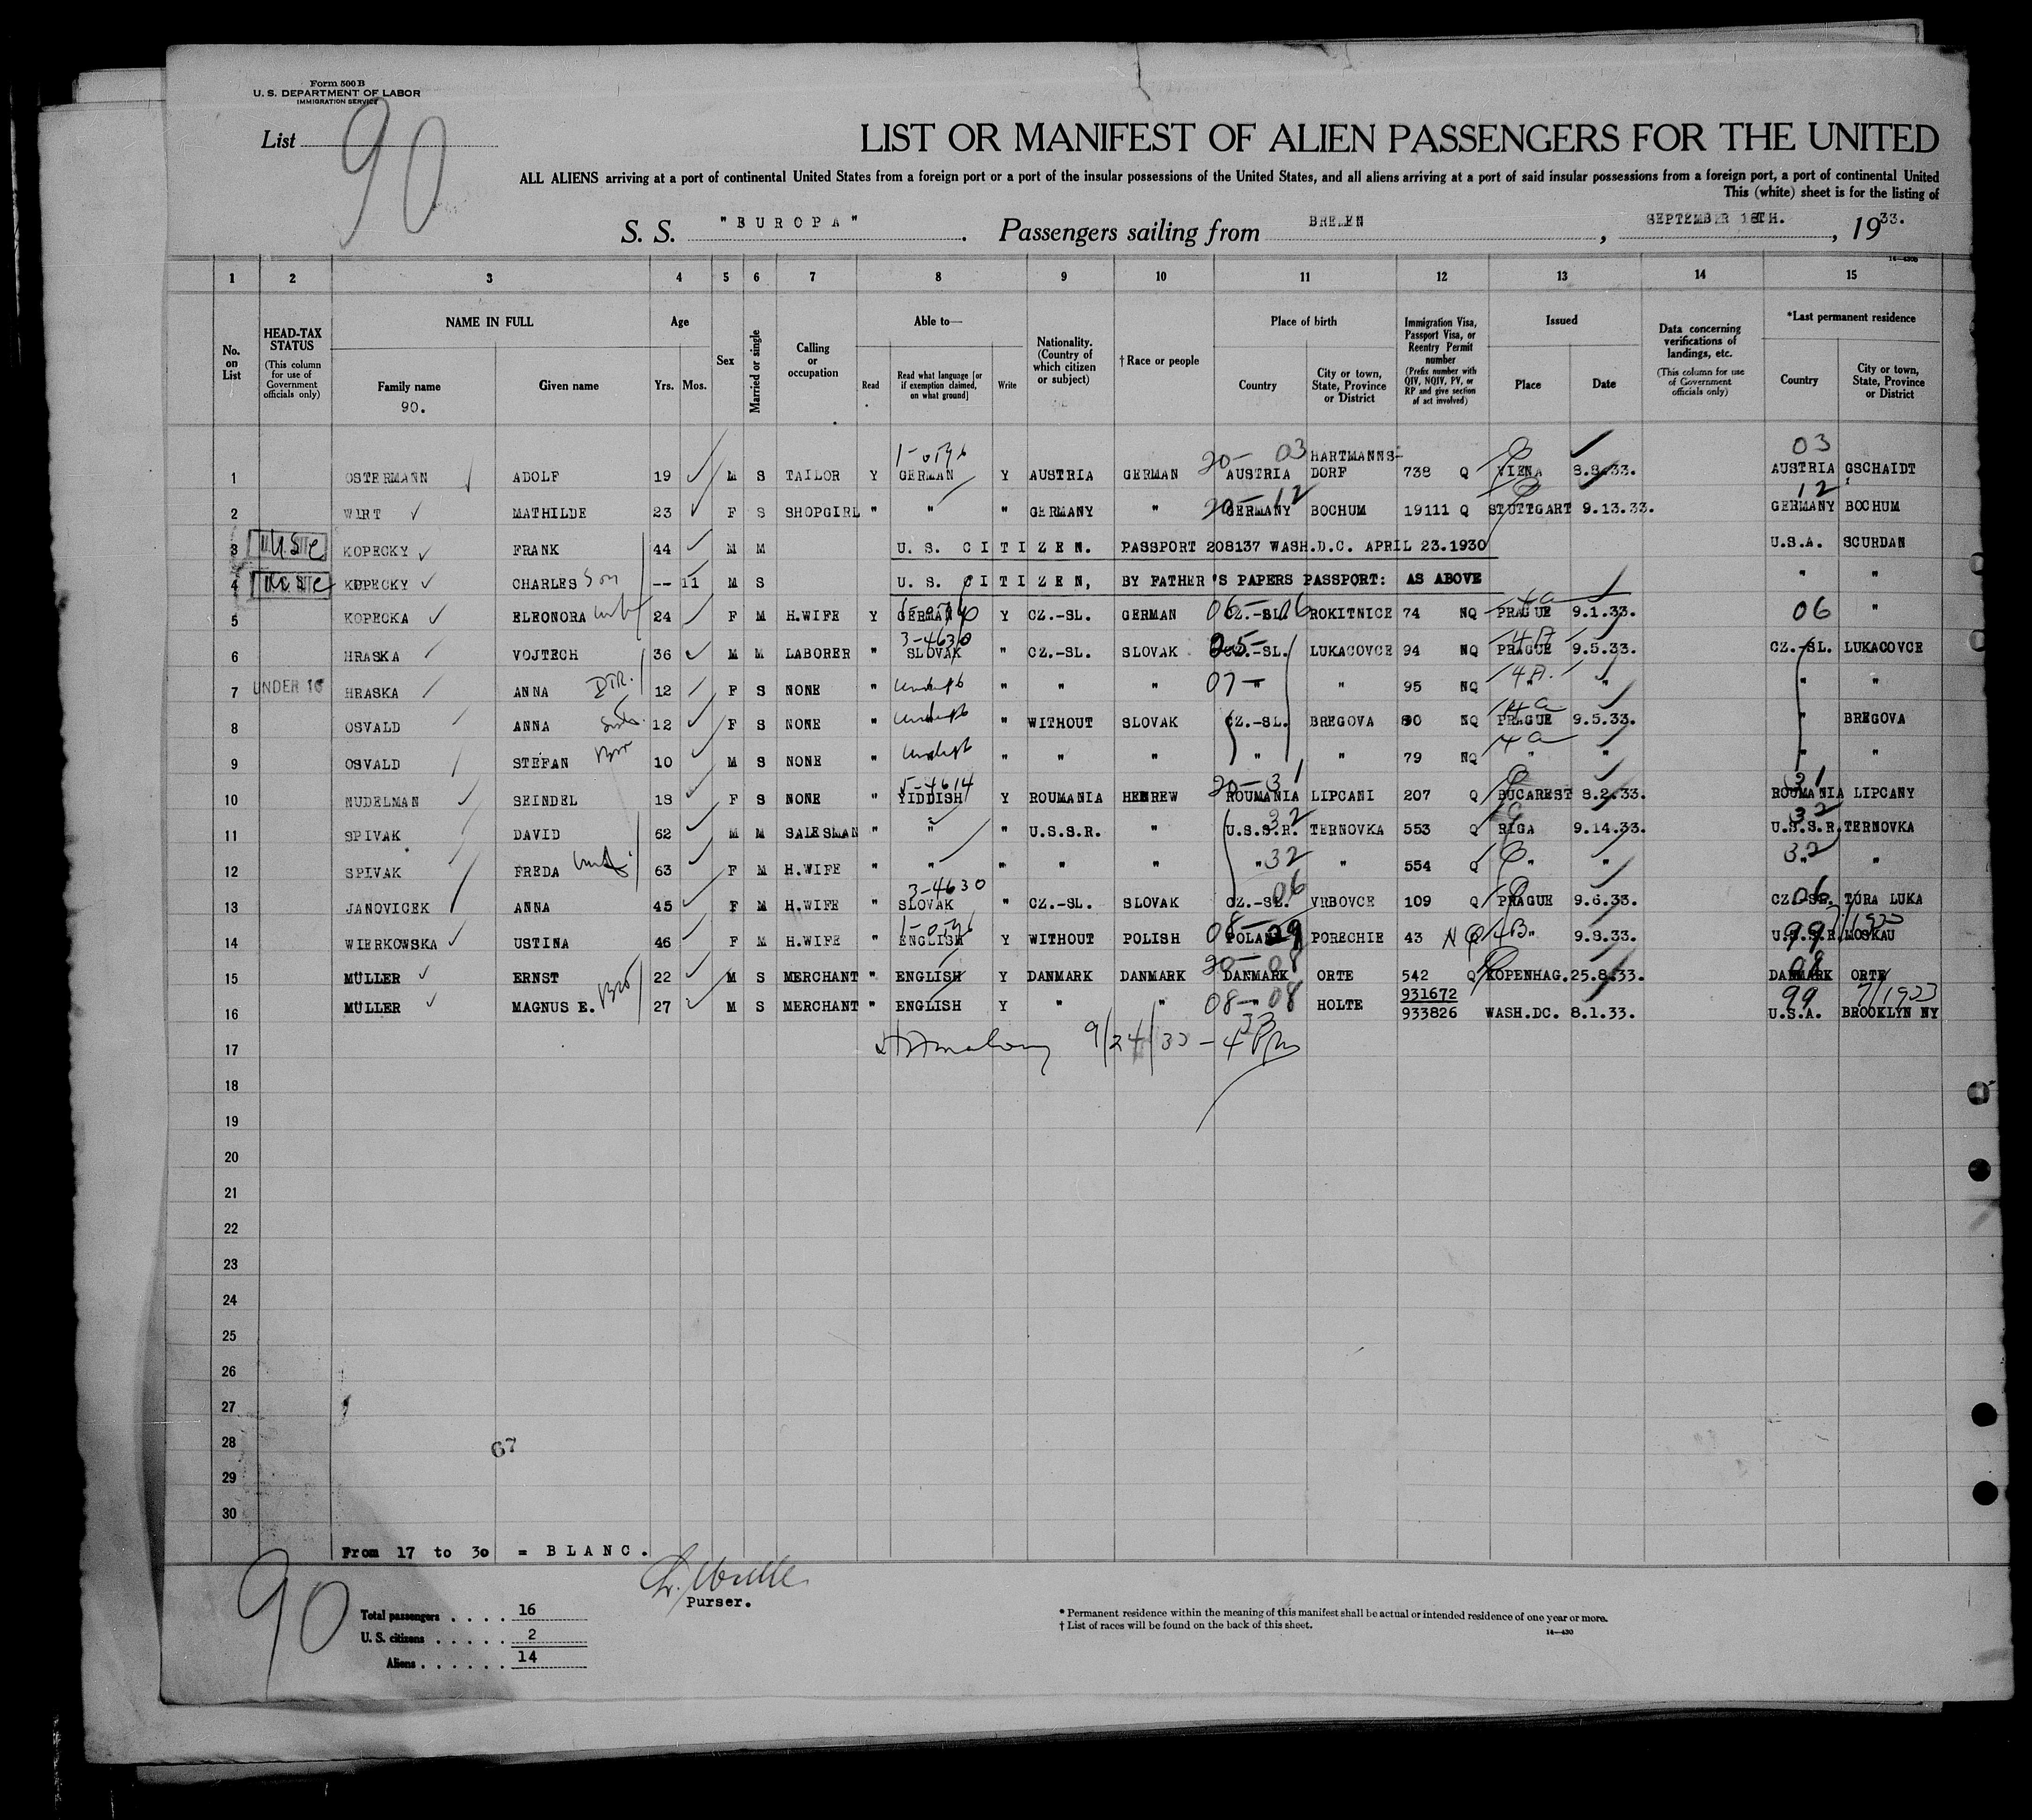 Form 500 B
U. S. DEPARTMENT OF LABOR
IMMIGRATION SERVICE
List 90
LIST OR MANIFEST OF ALIEN PASSENGERS FOR THE UNITED
ALL ALIENS arriving at a port of continental United States from a foreign port or a port of the insular possessions of the United States, and all aliens arriving at a port of said insular possessions from a foreign port, a port of continental United
This (white) sheet is for the listing of
S. S. "EUROPA". Passengers sailing from BREMEN, SEPTEMBER 18TH., 1933.
1 2 3 4 5 6 7 8 9 10 11 12 13 14 15
No. on List
HEAD-TAX STATUS (This column for use of Government officials only)
NAME IN FULL
Family name
Given name
90.
Age
Yrs. Mos.
Sex
Married or single
Calling or occupation
Able to—
Read
Read what language [or if exemption claimed, on what ground]
Write
Nationality. (Country of which citizen or subject)
† Race or people
Place of birth
Country
City or town, State, Province or District
Immigration Visa, Passport Visa, or Reentry Permit number (Prefix number with QIV, NQIV, PV, or RP and give section of act involved)
Issued
Place
Date
Data concerning verifications of landings, etc. (This column for use of Government officials only)
*Last permanent residence
Country
City or town, State, Province or District
1 OSTERMANN ADOLF 19 M S TAILOR Y GERMAN Y AUSTRIA GERMAN 20- 03 AUSTRIA HARTMANNS-DORF 738 Q VIENA 8.8.33. 03 AUSTRIA GSCHAIDT
2 WIRT MATHILDE 23 F S SHOPGIRL " " " GERMANY " 20-12 GERMANY BOCHUM 19111 Q STUTTGART 9.13.33. 12 GERMANY BOCHUM
3 KOPECKY FRANK 44 M M U. S. CITIZEN. PASSPORT 208137 WASH.D.C. APRIL 23.1930 U.S.A. SCURDAN
4 KOPECKY CHARLES Son -- 11 M S U. S. CITIZEN, BY FATHER'S PAPERS PASSPORT: AS ABOVE " "
5 KOPECKA ELEONORA wife 24 F M H.WIFE Y GERMAN Y CZ.-SL. GERMAN 06 CZ.-SL. ROKITNICE 74 NQ PRAGUE 9.1.33. 06 "
6 HRASKA VOJTECH 36 M M LABORER " 3-4630 SLOVAK " CZ.-SL. SLOVAK CZ.-SL. LUKACOVCE 94 NQ 4A PRAGUE 9.5.33. CZ.-SL. LUKACOVCE
7 UNDER 16 HRASKA ANNA DTR. 12 F S NONE " " " " 07- " " 95 NQ 4A. " " " "
8 OSVALD ANNA 12 F S NONE " " WITHOUT SLOVAK CZ.-SL. BREGOVA 80 NQ 4a PRAGUE 9.5.33. " BREGOVA
9 OSVALD STEFAN Bro 10 M S NONE " " " " " " 79 NQ 4a " " " "
10 NUDELMAN SEINDEL 18 F S NONE " 5-4614 YIDDISH Y ROUMANIA HEBREW 20-31 ROUMANIA LIPCANI 207 Q BUCAREST 8.2.33. 31 ROUMANIA LIPCANY
11 SPIVAK DAVID 62 M M SALESMAN " " " U.S.S.R. " 32 U.S.S.R. TERNOVKA 553 Q RIGA 9.14.33. 32 U.S.S.R. TERNOVKA
12 SPIVAK FREDA wife 63 F M H.WIFE " " " " " 32 " " 554 Q " " 32 " "
13 JANOVICEK ANNA 45 F M H.WIFE " 3-4630 SLOVAK " CZ.-SL. SLOVAK 06 CZ.-SL. VRBOVCE 109 Q PRAGUE 9.6.33. 06 CZ.-SL. TURA LUKA
14 WIERKOWSKA USTINA 46 F M H.WIFE " ENGLISH Y WITHOUT POLISH 08-29 POLAND PORECHIE 43 NQ 4B " 9.8.33. 99 U.S.S.R. MOSKAU
15 MÜLLER ERNST 22 M S MERCHANT " ENGLISH Y DANMARK DANMARK 20-08 DANMARK ORTE 542 Q KOPENHAG. 25.8.33. 08 DANMARK ORTE
16 MÜLLER MAGNUS E. Bro 27 M S MERCHANT " ENGLISH Y " " 08-"08 HOLTE 931672 933826 WASH.DC. 8.1.33. 99 U.S.A. 7/1923 BROOKLYN NY
17 9/24/33 - 4 Pm
18
19
20
21
22
23
24
25
26
27
28
29
30
67
From 17 to 30 = BLANC.
90
Purser.
Total passengers . . . . 16
U. S. citizens . . . . . 2
Aliens . . . . . . 14
* Permanent residence within the meaning of this manifest shall be actual or intended residence of one year or more.
† List of races will be found on the back of this sheet.
14—430